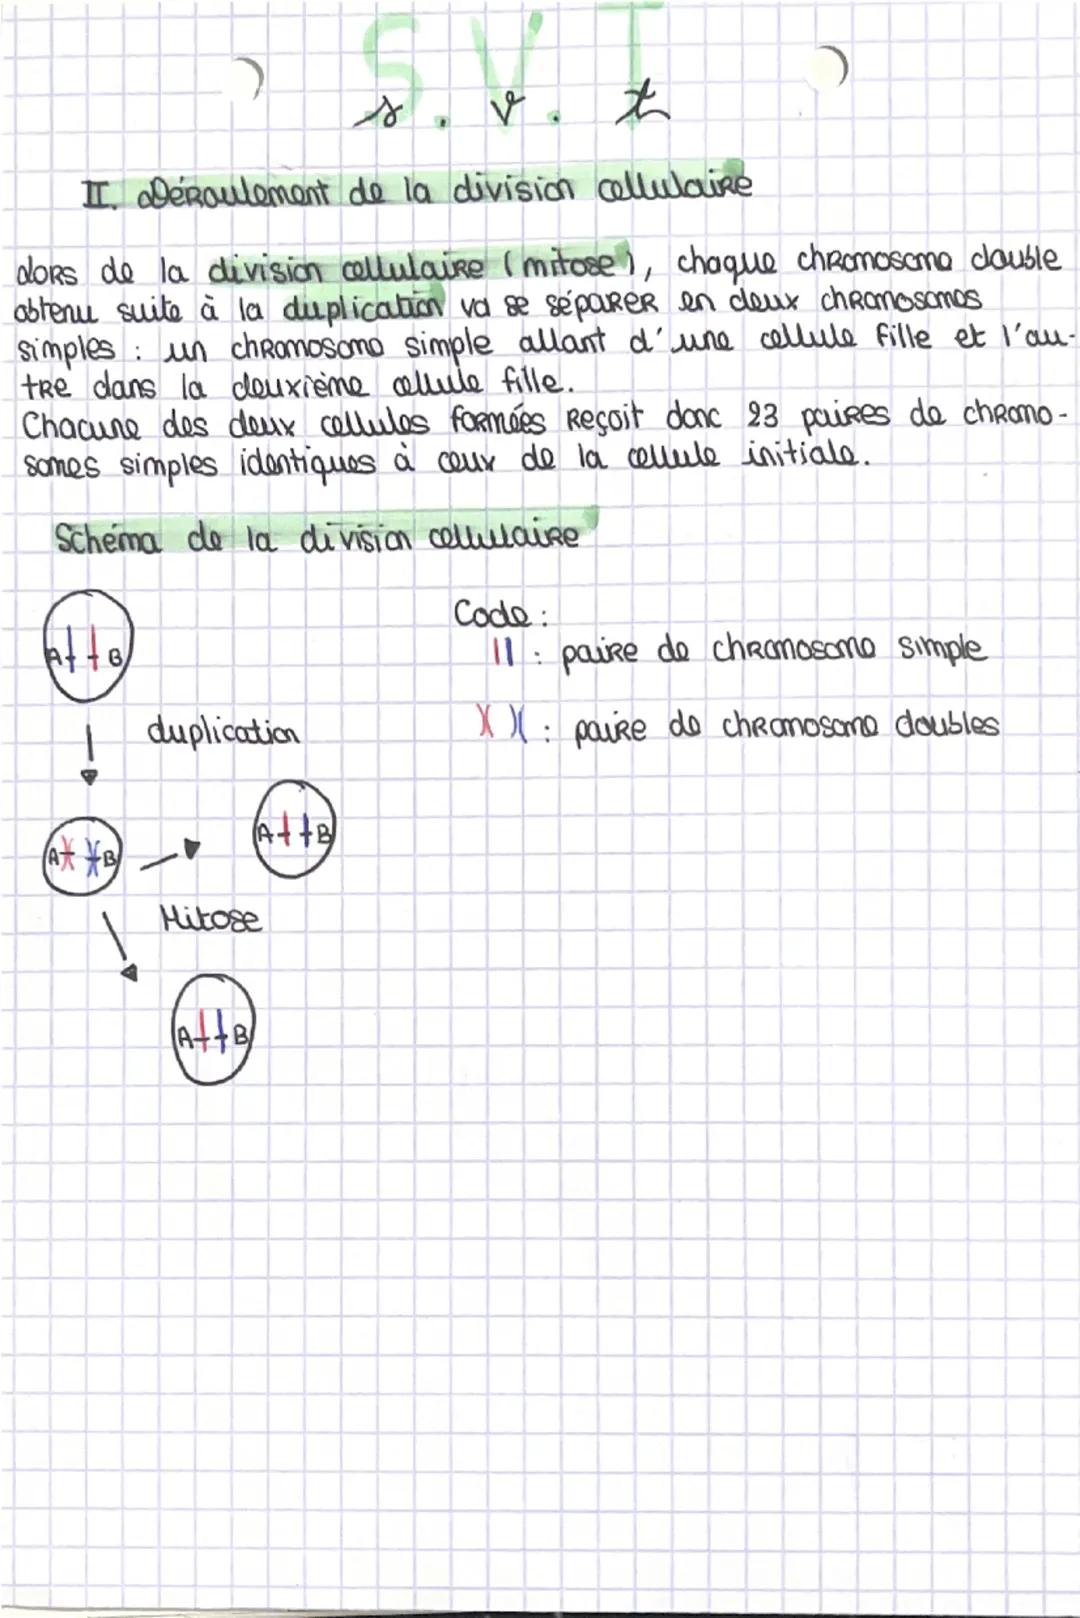 S.V.T
s.v.t
II. Déroulement de la division cellulaire
lors de la division cellulaire (mitose), chaque chromosome double
obtenu suite à la duplication va se séparer en deux chromosomes
simples : un chromosome simple allant d'une cellule fille et l'au-
tre dans la deuxième cellule fille.
Chacune des deux cellules formées reçoit donc 23 paires de chromo-
somes simples identiques à ceux de la cellule initiale.
Schéma de la division cellulaire
A B
Code :
: paire de chromosome simple
duplication
: paire de chromosome doubles
A B
A B
Mitose
A B